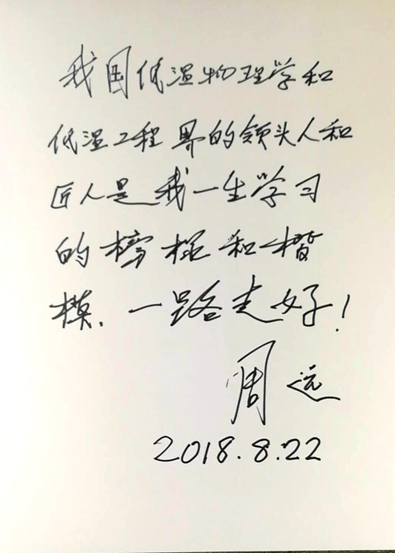 我国低温物理学和
低温工程界的领头人和
匠人是我一生学习
的榜样和楷
模.一路走好!
周远
2018.8.22